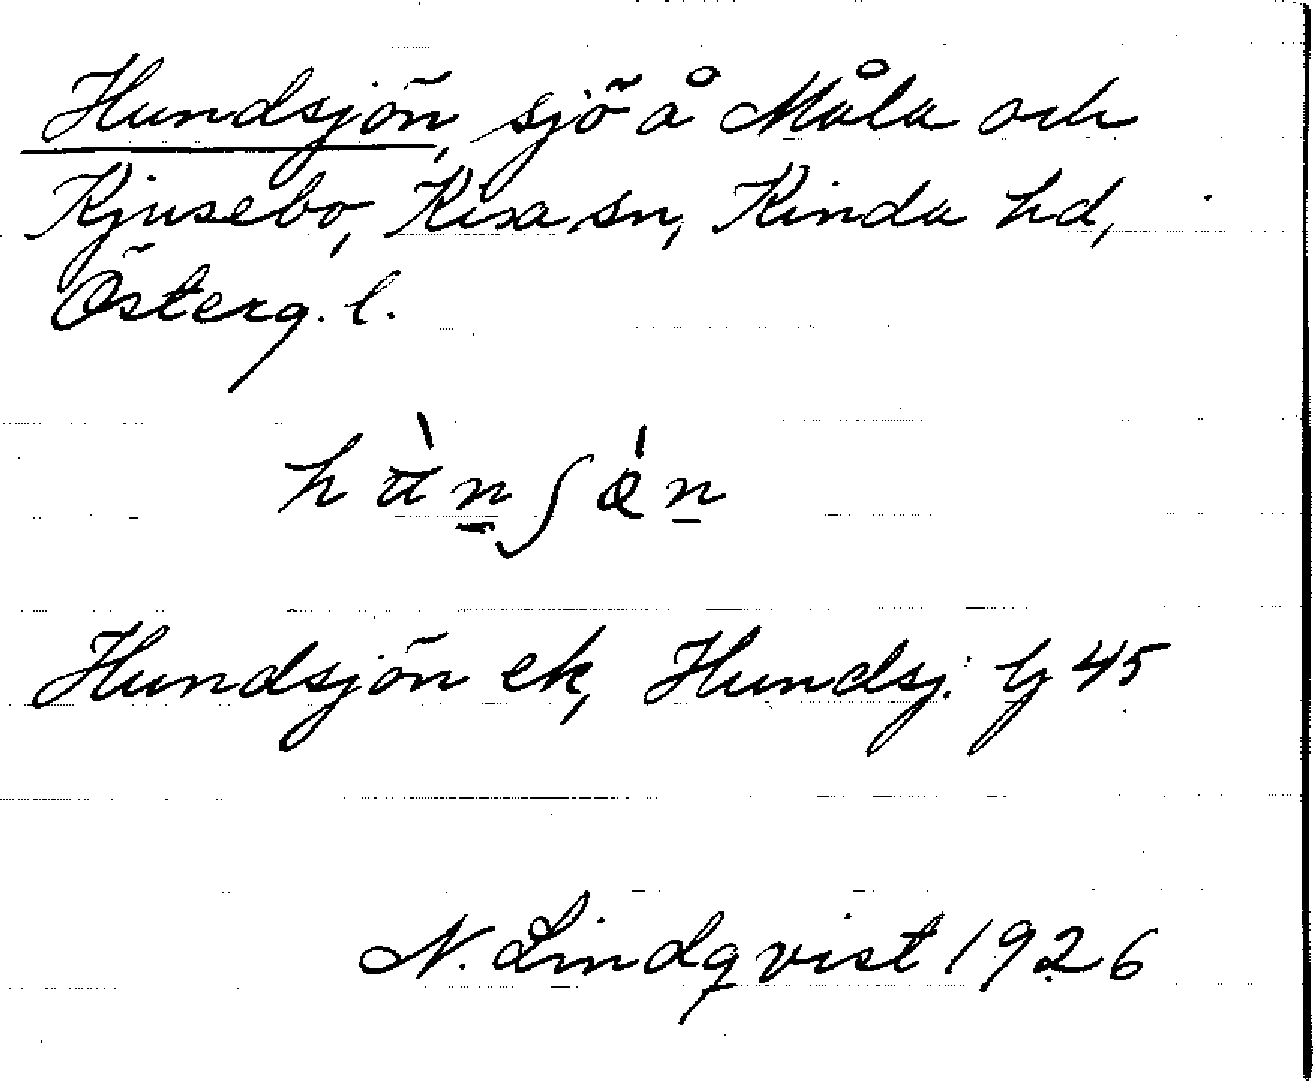 Hundsjön, sjö å Måla och
Kjusebo, Kisa sn, Kinda hd,
Österg. l.
Hundsjön ek, Hundsj. Lg 45
N. Lindqvist 1926